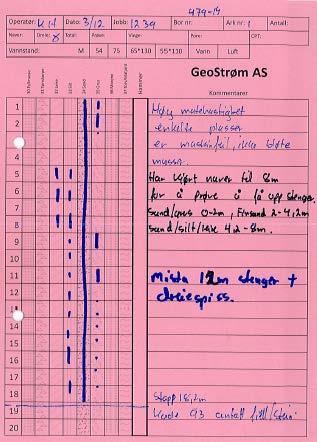 479-14
Operatør: KH Dato: 3/12 Jobb: 1239 Bor nr: Ark nr: 1 Antall:
Naver: Dreie: 8 Total: Prøve: Vinge: Fore: CPT:
Vannstand: M 54 75 65*130 55*130 Vann Luft
Kommentarer
GeoStrøm AS
Kommentarer
1
2
3
4
5
6
7
8
9
10
11
12
13
14
15
16
17
18
19
20
Høy matehastighet
enkelte plasser
er maskinfeil, ikke bløte
masser.
Har kjørt naver til 8m
for å prøve å få opp stenger.
Sand/grus 0-2m, Finsand 2-4,2m
sand/silt/leire 4,2-8m.
Mista 12m stenger +
dreiespiss.
Stopp 18,2m
Kode 93 antatt fjell/stein.